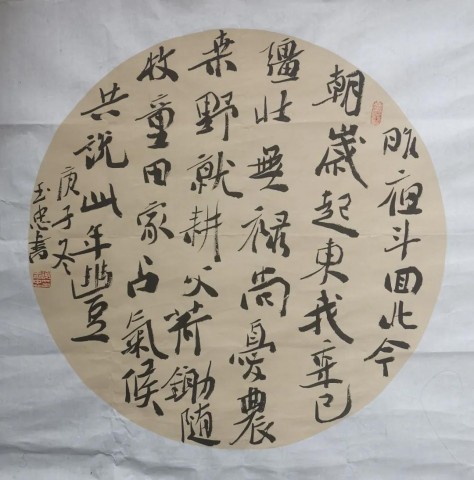 昨夜斗回北今
朝歲起東我年已
彊壯無祿尚憂農
桑野就耕父荷鋤隨
牧童田家占氣候
共說此年豐
庚子冬
玉忠書